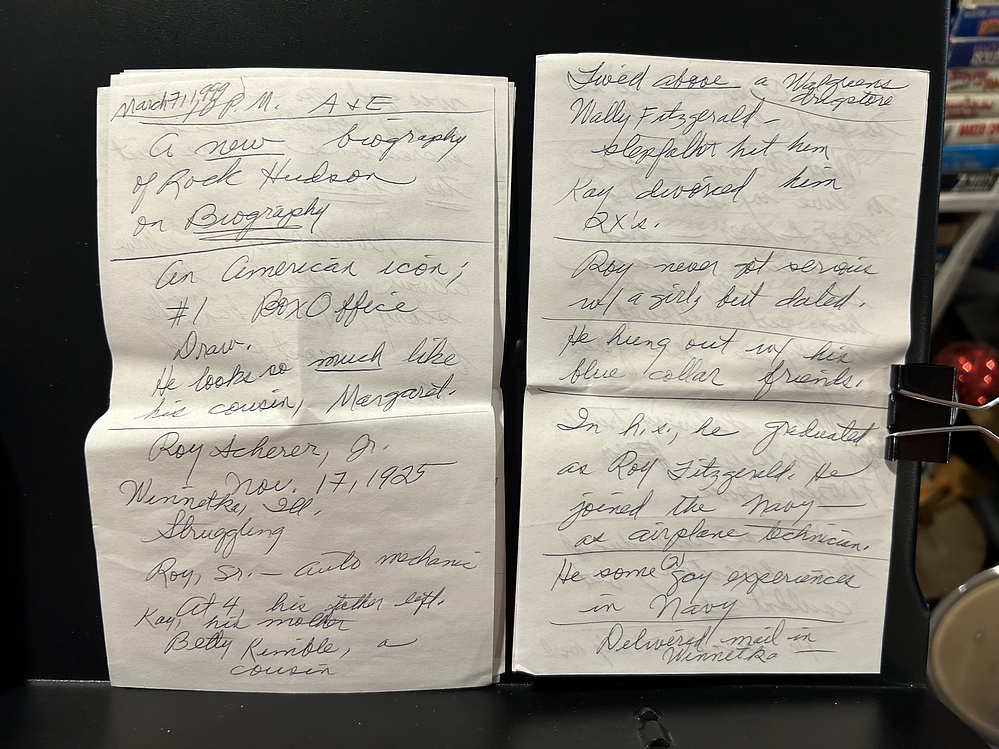 March 7, 1999, P.M. A & E
A new biography
of Rock Hudson
on Biography
An American icon;
#1 Box Office
Draw.
He looks so much like
his cousin, Margaret.
Roy Scherer, Jr.
Nov. 17, 1925
Winnetka, Ill.
Struggling
Roy, Sr. — auto mechanic
At 4, his father left.
Kay, his mother
Betty Kimble, a
cousin
Lived above a Walgreens
drugstore
Wally Fitzgerald —
stepfather hit him
Kay divorced him
2x's.
Roy never got serious
w/ a girl, but dated.
He hung out w/ his
blue collar friends.
In h.s., he graduated
as Roy Fitzgerald. He
joined the Navy —
as airplane technician.
He some (2) gay experiences
in Navy
Delivered mail in
Winnetka